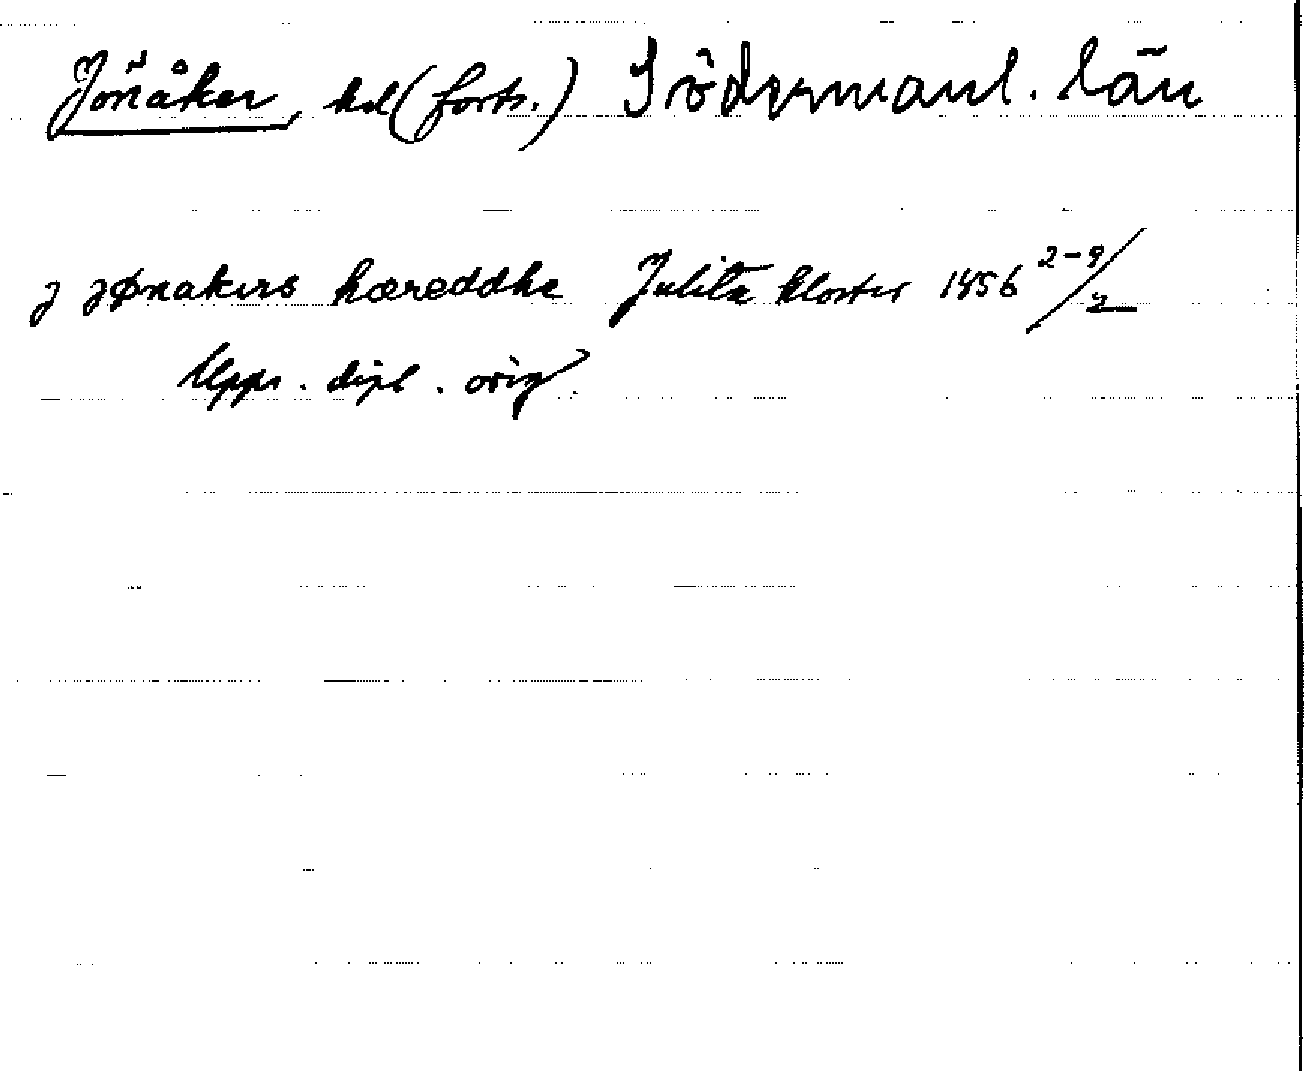 Jönåker, hd (forts.) Södermanl. län
j jønakers hæreddhe Julita kloster 1456 2-9/2
Upps. dipl. orig.